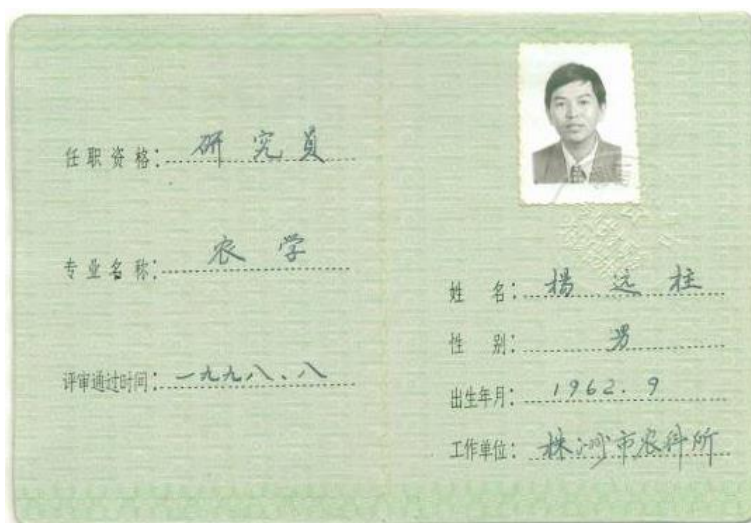 任职资格：研究员
专业名称：农学
评审通过时间：一九九八、八
姓名：杨远柱
性别：男
出生年月：1962.9
工作单位：株洲市农科所